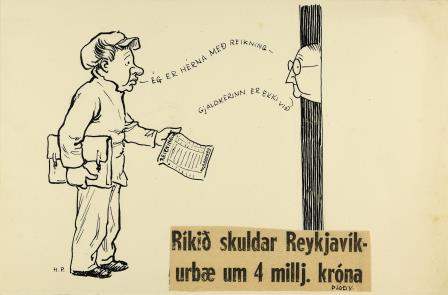 ÉG ER HÉRNA MEÐ REIKNING -
GJALDKERINN ER EKKI VIÐ
REIKNINGUR
Ríkið skuldar Reykjavík-
urbæ um 4 millj. króna
H.P.
ÞJÓÐV.